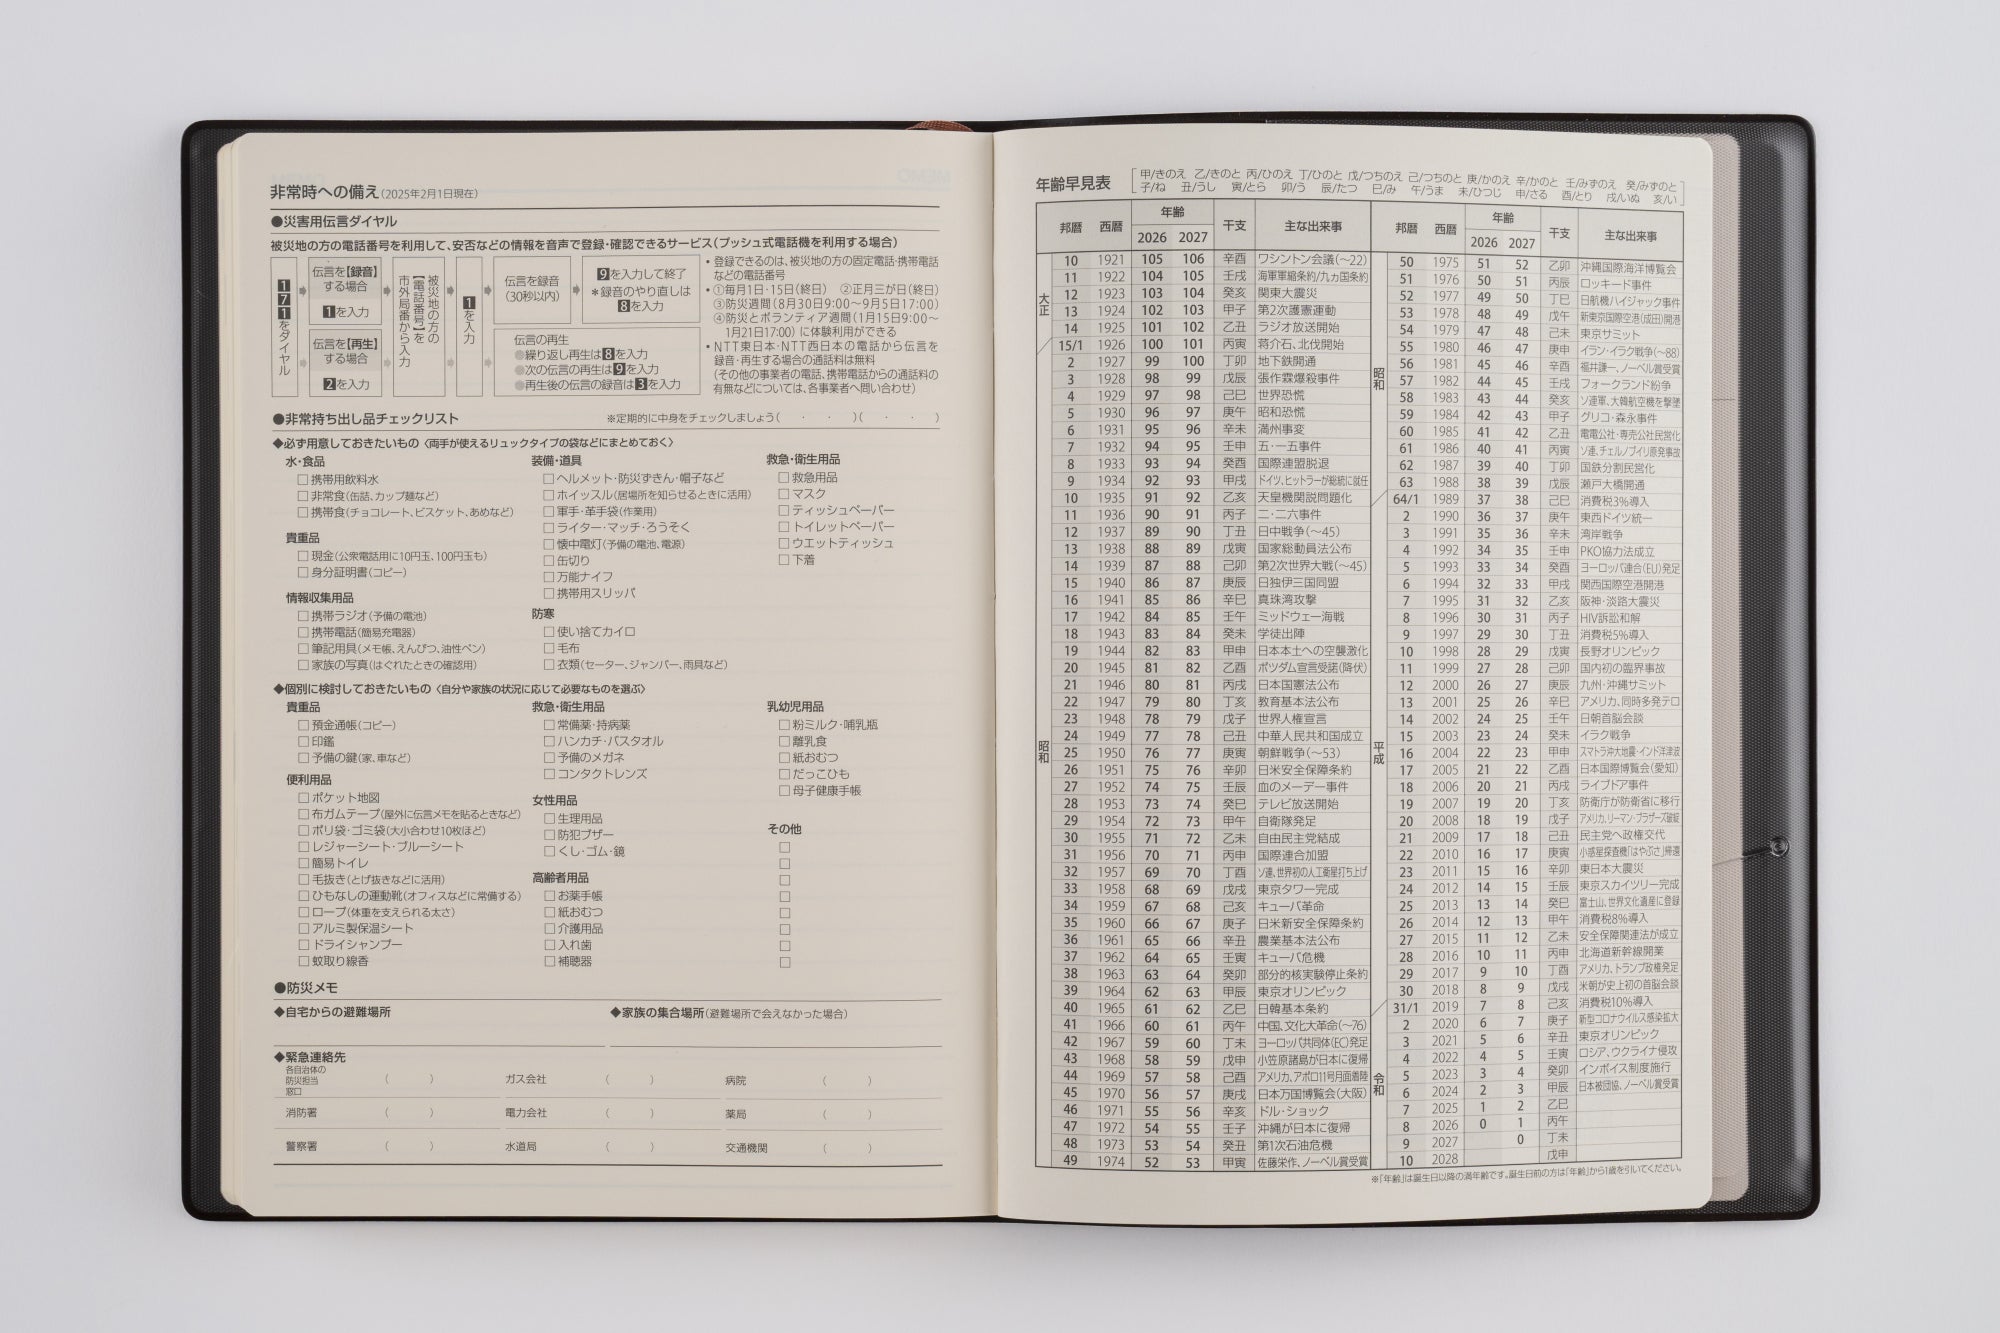 非常時への備え(2025年2月1日現在)
●災害用伝言ダイヤル
被災地の方の電話番号を利用して、安否などの情報を音声で登録・確認できるサービス(プッシュ式電話機を利用する場合)
171をダイヤル
伝言を【録音】
する場合
1を入力
伝言を【再生】
する場合
2を入力
被災地の方の
【電話番号】を
市外局番から入力
1を入力
伝言を録音
(30秒以内)
9を入力して終了
*録音のやり直しは
8を入力
伝言の再生
●繰り返し再生は8を入力
●次の伝言の再生は9を入力
●再生後の伝言の録音は3を入力
・登録できるのは、被災地の方の固定電話・携帯電話
などの電話番号
・①毎月1日・15日(終日) ②正月三が日(終日)
③防災週間(8月30日9:00〜9月5日17:00)
④防災とボランティア週間(1月15日9:00〜
1月21日17:00) に体験利用ができる
・NTT東日本・NTT西日本の電話から伝言を
録音・再生する場合の通話料は無料
(その他の事業者の電話、携帯電話からの通話料の
有無などについては、各事業者へ問い合わせ)
●非常持ち出し品チェックリスト ※定期的に中身をチェックしましょう( ・ ・ )( ・ ・ )
◆必ず用意しておきたいもの〈両手が使えるリュックタイプの袋などにまとめておく〉
水・食品
□携帯用飲料水
□非常食(缶詰、カップ麺など)
□携帯食(チョコレート、ビスケット、あめなど)
貴重品
□現金(公衆電話用に10円玉、100円玉も)
□身分証明書(コピー)
情報収集用品
□携帯ラジオ(予備の電池)
□携帯電話(簡易充電器)
□筆記用具(メモ帳、えんぴつ、油性ペン)
□家族の写真(はぐれたときの確認用)
装備・道具
□ヘルメット・防災ずきん・帽子など
□ホイッスル(居場所を知らせるときに活用)
□軍手・革手袋(作業用)
□ライター・マッチ・ろうそく
□懐中電灯(予備の電池、電源)
□缶切り
□万能ナイフ
□携帯用スリッパ
防寒
□使い捨てカイロ
□毛布
□衣類(セーター、ジャンパー、雨具など)
救急・衛生用品
□救急用品
□マスク
□ティッシュペーパー
□トイレットペーパー
□ウエットティッシュ
□下着
◆個別に検討しておきたいもの〈自分や家族の状況に応じて必要なものを選ぶ〉
貴重品
□預金通帳(コピー)
□印鑑
□予備の鍵(家、車など)
便利用品
□ポケット地図
□布ガムテープ(屋外に伝言メモを貼るときなど)
□ポリ袋・ゴミ袋(大小合わせ10枚ほど)
□レジャーシート・ブルーシート
□簡易トイレ
□毛抜き(とげ抜きなどに活用)
□ひもなしの運動靴(オフィスなどに常備する)
□ロープ(体重を支えられる太さ)
□アルミ製保温シート
□ドライシャンプー
□蚊取り線香
救急・衛生用品
□常備薬・持病薬
□ハンカチ・バスタオル
□予備のメガネ
□コンタクトレンズ
女性用品
□生理用品
□防犯ブザー
□くし・ゴム・鏡
高齢者用品
□お薬手帳
□紙おむつ
□介護用品
□入れ歯
□補聴器
乳幼児用品
□粉ミルク・哺乳瓶
□離乳食
□紙おむつ
□だっこひも
□母子健康手帳
その他
□
□
□
□
□
□
□
□
●防災メモ
◆自宅からの避難場所 ◆家族の集合場所(避難場所で会えなかった場合)
◆緊急連絡先
各自治体の
防災担当
窓口 ( ) ガス会社 ( ) 病院 ( )
消防署 ( ) 電力会社 ( ) 薬局 ( )
警察署 ( ) 水道局 ( ) 交通機関 ( )
年齢早見表
甲/きのえ 乙/きのと 丙/ひのえ 丁/ひのと 戊/つちのえ 己/つちのと 庚/かのえ 辛/かのと 壬/みずのえ 癸/みずのと
子/ね 丑/うし 寅/とら 卯/う 辰/たつ 巳/み 午/うま 未/ひつじ 申/さる 酉/とり 戌/いぬ 亥/い
邦暦 西暦 年齢 2026 2027 干支 主な出来事
大正
10 1921 105 106 辛酉 ワシントン会議(〜22)
11 1922 104 105 壬戌 海軍軍縮条約/九ヵ国条約
12 1923 103 104 癸亥 関東大震災
13 1924 102 103 甲子 第2次護憲運動
14 1925 101 102 乙丑 ラジオ放送開始
15/1 1926 100 101 丙寅 蒋介石、北伐開始
昭和
2 1927 99 100 丁卯 地下鉄開通
3 1928 98 99 戊辰 張作霖爆殺事件
4 1929 97 98 己巳 世界恐慌
5 1930 96 97 庚午 昭和恐慌
6 1931 95 96 辛未 満州事変
7 1932 94 95 壬申 五・一五事件
8 1933 93 94 癸酉 国際連盟脱退
9 1934 92 93 甲戌 ドイツ、ヒットラーが総統に就任
10 1935 91 92 乙亥 天皇機関説問題化
11 1936 90 91 丙子 二・二六事件
12 1937 89 90 丁丑 日中戦争(〜45)
13 1938 88 89 戊寅 国家総動員法公布
14 1939 87 88 己卯 第2次世界大戦(〜45)
15 1940 86 87 庚辰 日独伊三国同盟
16 1941 85 86 辛巳 真珠湾攻撃
17 1942 84 85 壬午 ミッドウェー海戦
18 1943 83 84 癸未 学徒出陣
19 1944 82 83 甲申 日本本土への空襲激化
20 1945 81 82 乙酉 ポツダム宣言受諾(降伏)
21 1946 80 81 丙戌 日本国憲法公布
22 1947 79 80 丁亥 教育基本法公布
23 1948 78 79 戊子 世界人権宣言
24 1949 77 78 己丑 中華人民共和国成立
25 1950 76 77 庚寅 朝鮮戦争(〜53)
26 1951 75 76 辛卯 日米安全保障条約
27 1952 74 75 壬辰 血のメーデー事件
28 1953 73 74 癸巳 テレビ放送開始
29 1954 72 73 甲午 自衛隊発足
30 1955 71 72 乙未 自由民主党結成
31 1956 70 71 丙申 国際連合加盟
32 1957 69 70 丁酉 ソ連、世界初の人工衛星打ち上げ
33 1958 68 69 戊戌 東京タワー完成
34 1959 67 68 己亥 キューバ革命
35 1960 66 67 庚子 日米新安全保障条約
36 1961 65 66 辛丑 農業基本法公布
37 1962 64 65 壬寅 キューバ危機
38 1963 63 64 癸卯 部分的核実験停止条約
39 1964 62 63 甲辰 東京オリンピック
40 1965 61 62 乙巳 日韓基本条約
41 1966 60 61 丙午 中国、文化大革命(〜76)
42 1967 59 60 丁未 ヨーロッパ共同体(EC)発足
43 1968 58 59 戊申 小笠原諸島が日本に復帰
44 1969 57 58 己酉 アメリカ、アポロ11号月面着陸
45 1970 56 57 庚戌 日本万国博覧会(大阪)
46 1971 55 56 辛亥 ドル・ショック
47 1972 54 55 壬子 沖縄が日本に復帰
48 1973 53 54 癸丑 第1次石油危機
49 1974 52 53 甲寅 佐藤栄作、ノーベル賞受賞
邦暦 西暦 年齢 2026 2027 干支 主な出来事
昭和
50 1975 51 52 乙卯 沖縄国際海洋博覧会
51 1976 50 51 丙辰 ロッキード事件
52 1977 49 50 丁巳 日航機ハイジャック事件
53 1978 48 49 戊午 新東京国際空港(成田)開港
54 1979 47 48 己未 東京サミット
55 1980 46 47 庚申 イラン・イラク戦争(〜88)
56 1981 45 46 辛酉 福井謙一、ノーベル賞受賞
57 1982 44 45 壬戌 フォークランド紛争
58 1983 43 44 癸亥 ソ連軍、大韓航空機を撃墜
59 1984 42 43 甲子 グリコ・森永事件
60 1985 41 42 乙丑 電電公社・専売公社民営化
61 1986 40 41 丙寅 ソ連、チェルノブイリ原発事故
62 1987 39 40 丁卯 国鉄分割民営化
63 1988 38 39 戊辰 瀬戸大橋開通
64/1 1989 37 38 己巳 消費税3%導入
平成
2 1990 36 37 庚午 東西ドイツ統一
3 1991 35 36 辛未 湾岸戦争
4 1992 34 35 壬申 PKO協力法成立
5 1993 33 34 癸酉 ヨーロッパ連合(EU)発足
6 1994 32 33 甲戌 関西国際空港開港
7 1995 31 32 乙亥 阪神・淡路大震災
8 1996 30 31 丙子 HIV訴訟和解
9 1997 29 30 丁丑 消費税5%導入
10 1998 28 29 戊寅 長野オリンピック
11 1999 27 28 己卯 国内初の臨界事故
12 2000 26 27 庚辰 九州・沖縄サミット
13 2001 25 26 辛巳 アメリカ、同時多発テロ
14 2002 24 25 壬午 日朝首脳会談
15 2003 23 24 癸未 イラク戦争
16 2004 22 23 甲申 スマトラ沖大地震・インド洋津波
17 2005 21 22 乙酉 日本国際博覧会(愛知)
18 2006 20 21 丙戌 ライブドア事件
19 2007 19 20 丁亥 防衛庁が防衛省に移行
20 2008 18 19 戊子 アメリカ、リーマン・ブラザーズ破綻
21 2009 17 18 己丑 民主党へ政権交代
22 2010 16 17 庚寅 小惑星探査機「はやぶさ」帰還
23 2011 15 16 辛卯 東日本大震災
24 2012 14 15 壬辰 東京スカイツリー完成
25 2013 13 14 癸巳 富士山、世界文化遺産に登録
26 2014 12 13 甲午 消費税8%導入
27 2015 11 12 乙未 安全保障関連法が成立
28 2016 10 11 丙申 北海道新幹線開業
29 2017 9 10 丁酉 アメリカ、トランプ政権発足
30 2018 8 9 戊戌 米朝が史上初の首脳会談
31/1 2019 7 8 己亥 消費税10%導入
令和
2 2020 6 7 庚子 新型コロナウイルス感染拡大
3 2021 5 6 辛丑 東京オリンピック
4 2022 4 5 壬寅 ロシア、ウクライナ侵攻
5 2023 3 4 癸卯 インボイス制度施行
6 2024 2 3 甲辰 日本被団協、ノーベル賞受賞
7 2025 1 2 乙巳
8 2026 0 1 丙午
9 2027 0 丁未
10 2028 戊申
※「年齢」は誕生日以降の満年齢です。誕生日前の方は「年齢」から1歳を引いてください。